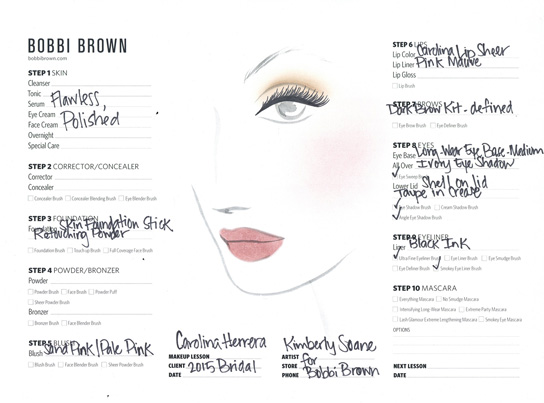 BOBBI BROWN
bobbibrown.com
STEP 1 SKIN
Cleanser
Tonic
Serum Flawless,
Eye Cream
Face Cream Polished
Overnight
Special Care
STEP 2 CORRECTOR/CONCEALER
Corrector
Concealer
Concealer Brush Concealer Blending Brush Eye Blender Brush
STEP 3 FOUNDATION
Foundation Skin Foundation Stick
Retouching Powder
Foundation Brush Touch-up Brush Full Coverage Face Brush
STEP 4 POWDER/BRONZER
Powder
Powder Brush Face Brush Powder Puff
Sheer Powder Brush
Bronzer
Bronzer Brush Face Blender Brush
STEP 5 BLUSH
Blush Sand Pink/Pale Pink
Blush Brush Face Blender Brush Sheer Powder Brush
Carolina Herrera
MAKEUP LESSON
CLIENT 2015 Bridal
DATE
Kimberly Soane
ARTIST
STORE for
PHONE Bobbi Brown
STEP 6 LIPS
Lip Color Carolina Lip Sheer
Lip Liner Pink Mauve
Lip Gloss
Lip Brush
STEP 7 BROWS
Dark Brow Kit - defined
Eye Brow Brush Eye Definer Brush
STEP 8 EYES
Eye Base Long-Wear Eye Base-Medium
All Over Ivory Eye Shadow
Eye Sweep Brush
Lower Lid Shell on lid
Taupe in Crease
Eye Shadow Brush Cream Shadow Brush
Angle Eye Shadow Brush
STEP 9 EYELINER
Liner Black Ink
Ultra Fine Eyeliner Brush Eye Liner Brush Eye Smudge Brush
Eye Definer Brush Smokey Eye Liner Brush
STEP 10 MASCARA
Everything Mascara No Smudge Mascara
Intensifying Long-Wear Mascara Extreme Party Mascara
Lash Glamour Extreme Lengthening Mascara Smokey Eye Mascara
OPTIONS
NEXT LESSON
DATE